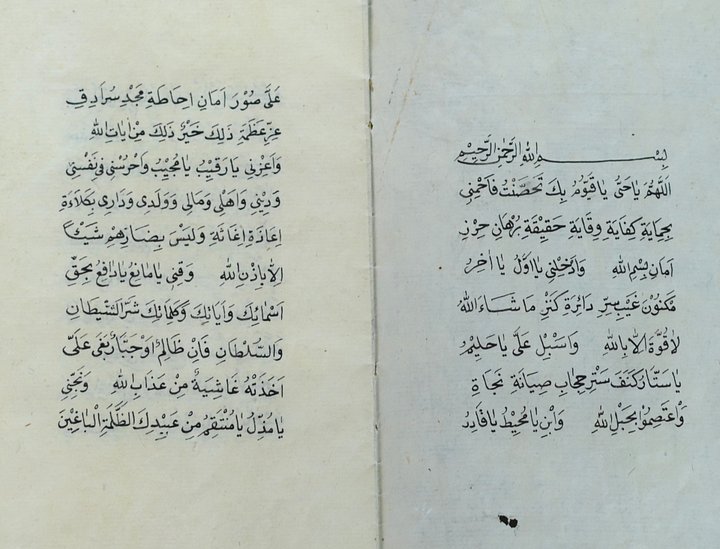 بِسْمِ اللهِ الرَّحْمٰنِ الرَّحِيْمِ
اَللّٰهُمَّ يَا حَىُّ يَا قَيُّوْمُ بِكَ تَحَصَّنْتُ فَاحْمِنِى
بِحِمَايَةِ كِفَايَةِ وِقَايَةِ حَقِيْقَةِ بُرْهَانِ حِرْزِ
اَمَانِ بِسْمِ اللهِ وَاَدْخِلْنِى يَا اَوَّلُ يَا اٰخِرُ
مَكْنُوْنَ غَيْبِ سِرِّ دَائِرَةِ كَنْزِ مَا شَاءَ اللهُ
لَا قُوَّةَ اِلَّا بِاللهِ وَاَسْبِلْ عَلَىَّ يَا حَلِيْمُ
يَا سَتَّارُ كَنَفَ سَتْرِ حِجَابِ صِيَانَةِ نَجَاةِ
وَاعْتَصِمُوا بِحَبْلِ اللهِ وَابْنِ يَا مُحِيْطُ يَا قَادِرُ
عَلَىَّ صُوْرَ اَمَانِ اِحَاطَةِ مَجْدِ سُرَادِقِ
عِزِّ عَظَمَةِ ذٰلِكَ خَيْرٌ ذٰلِكَ مِنْ اٰيَاتِ اللهِ
وَاَعِزْنِى يَا رَقِيْبُ يَا مُجِيْبُ وَاحْرُسْنِى فِى نَفْسِى
وَدِيْنِى وَاَهْلِى وَمَالِى وَوَلَدِى وَدَارِى بِكَلَاءَةِ
اِعَاذَةِ اِغَاثَةِ وَلَيْسَ بِضَارِّهِمْ شَيْئًا
اِلَّا بِاِذْنِ اللهِ وَقِنِى يَا مَانِعُ يَا دَافِعُ بِحَقِّ
اَسْمَائِكَ وَاٰيَاتِكَ وَكَلِمَاتِكَ شَرَّ الشَّيْطَانِ
وَالسُّلْطَانِ فَاِنْ ظَالِمٌ اَوْ جَبَّارٌ بَغٰى عَلَىَّ
اَخَذَتْهُ غَاشِيَةٌ مِنْ عَذَابِ اللهِ وَنَجِّنِى
يَا مُذِلُّ يَا مُنْتَقِمُ مِنْ عَبِيْدِكَ الظَّلَمَةِ الْبَاغِيْنَ